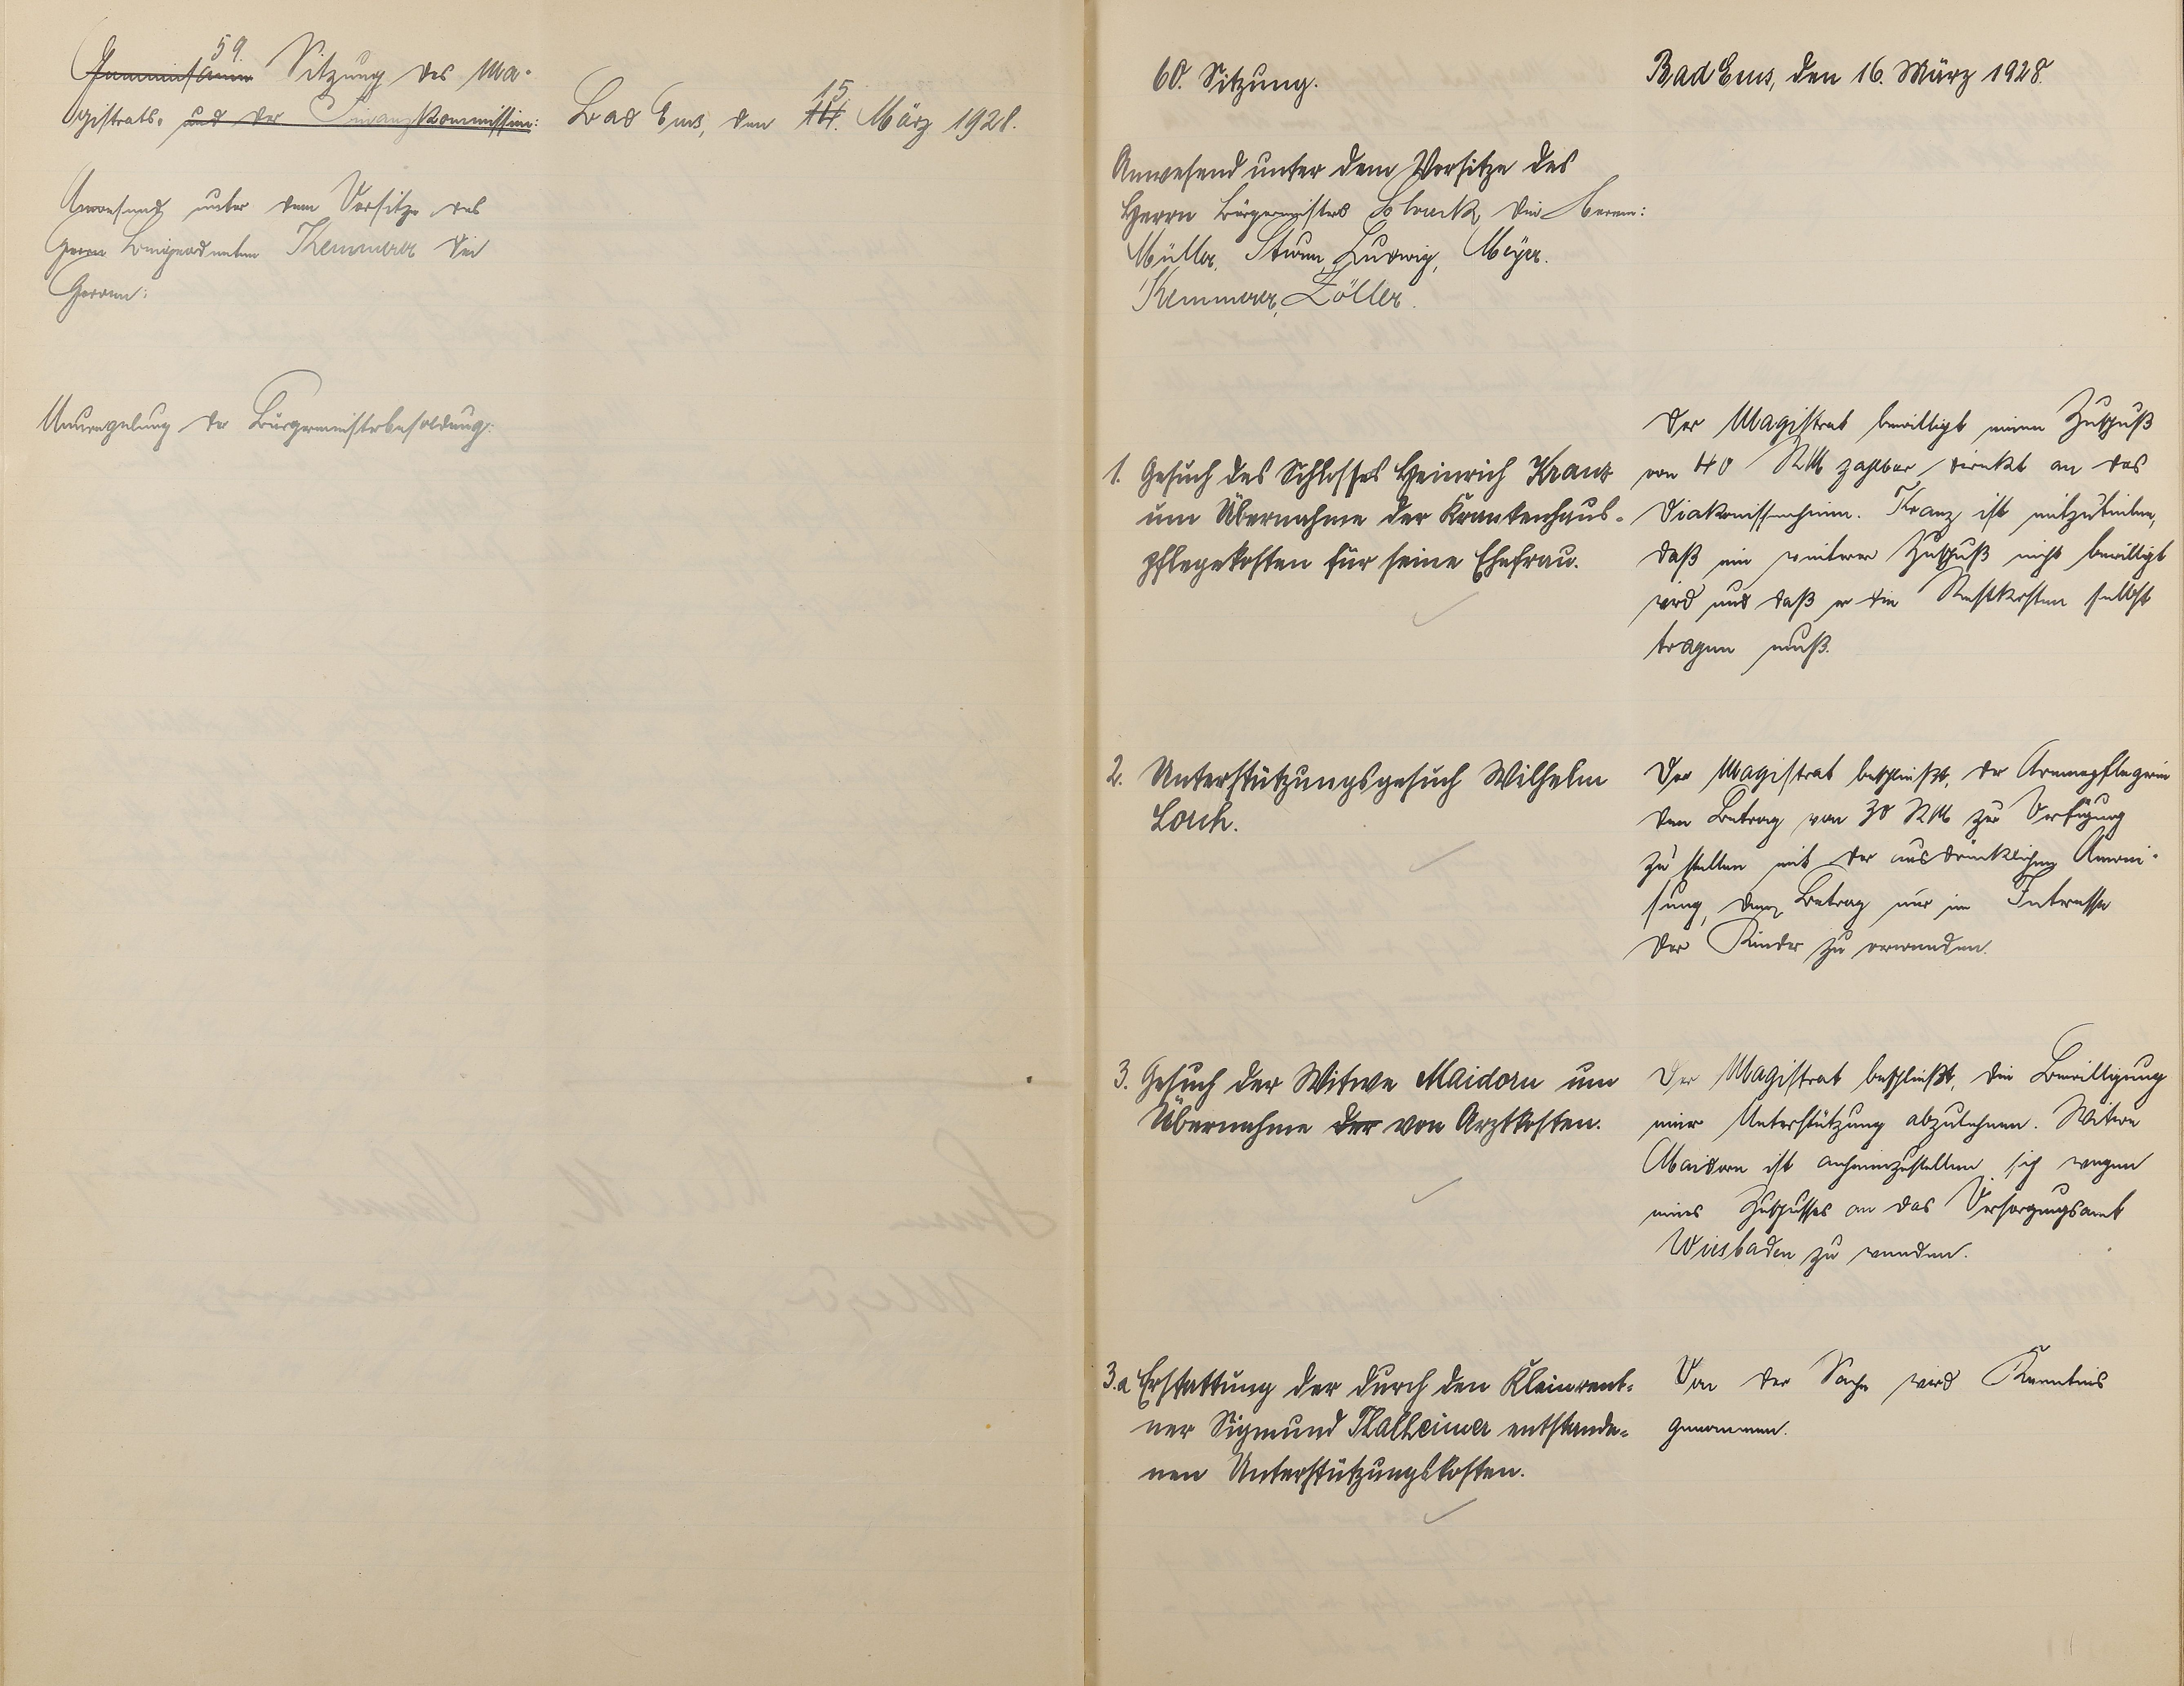 59.
Gemeinsame Sitzung des Ma-
gistrats- und der Finanzkommission: Bad Ems, den 14. 15. März 1928.
Anwesend unter dem Vorsitze des
Herrn Beigeordneten Kemmerer die
Herren:
Neuregelung der Bürgermeisterbesoldung.
60. Sitzung.
Bad Ems, den 16. März 1928.
Anwesend unter dem Vorsitze des
Herrn Bürgermeisters die Herren:
Müller, Sturm, Ludwig, Meyer.
Kemmerer, Zöller.
1. Gesuch des Schlossers Heinrich Kranz
um Übernahme der Krankenhaus-
pflegekosten für seine Ehefrau.
Der Magistrat bewilligt einen Zuschuß
von 40 RM zahlbar direkt an das
Diakonissenheim. Kranz ist mitzuteilen,
daß ein weiterer Zuschuß nicht bewilligt
wird und daß er die Restkosten selbst
tragen muß.
2. Unterstützungsgesuch Wilhelm
Lorch.
Der Magistrat beschließt, der Armenpflegerin
den Betrag von 30 RM zur Verfügung
zu stellen mit der ausdrücklichen Anwei-
sung, den Betrag nur im Interesse
der Kinder zu verwenden.
3. Gesuch der Witwe Maidorn um
Übernahme der von Arztkosten.
Der Magistrat beschließt, die Bewilligung
einer Unterstützung abzulehnen. Witwe
Maidorn ist anheimzustellen sich wegen
eines Zuschusses an das Versorgungsamt
Wiesbaden zu wenden.
3.a Erstattung der durch den Kleinrent-
ner Sigmund Thalheimer entstande-
nen Unterstützungskosten.
Von der Sache wird Kenntnis
genommen.